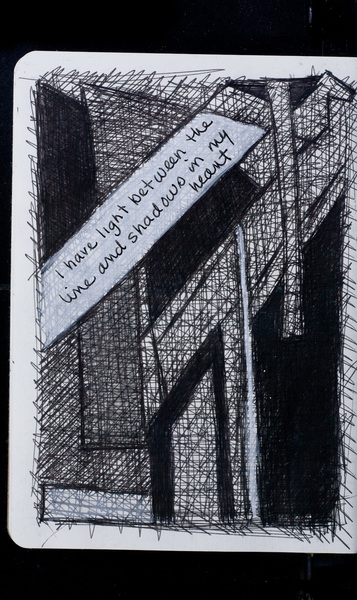 I have light between the
line and shadows in my
heart